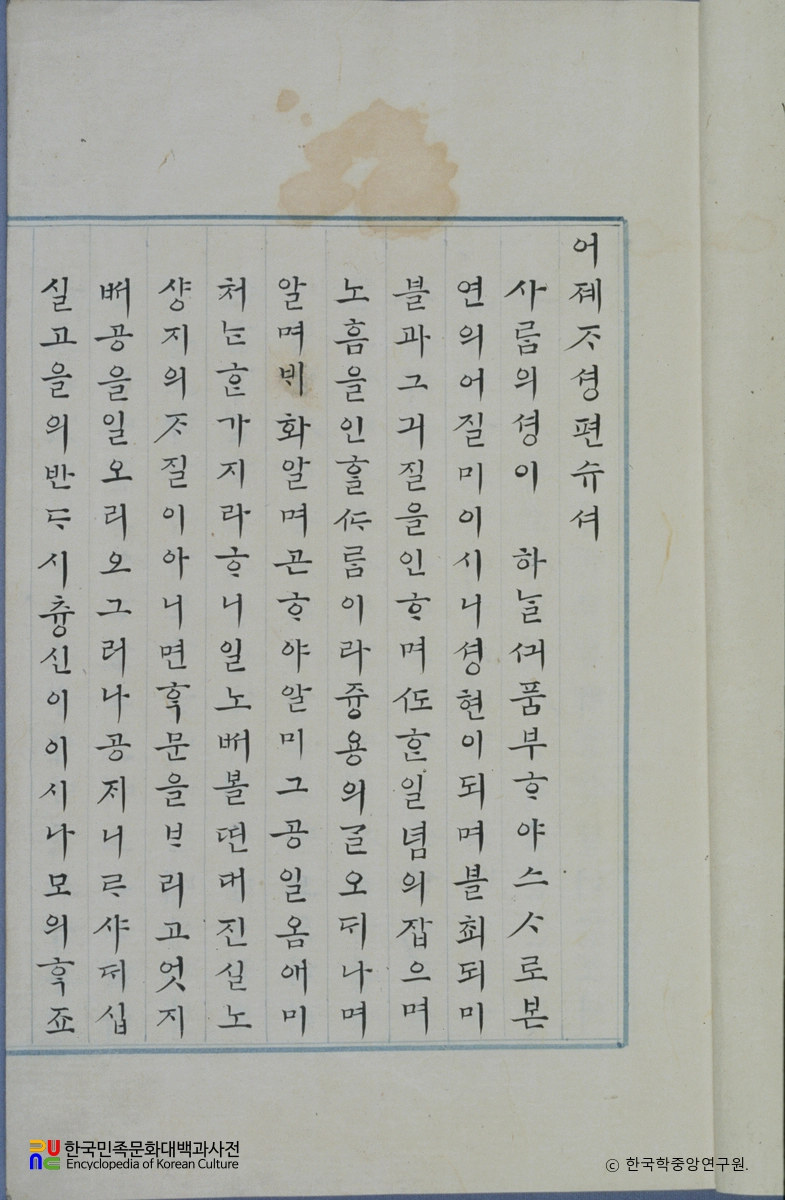 어졔ᄌᆞ셩편슈셔
사ᄅᆞᆷ의셩이 하ᄂᆞᆯᄭᅴ품부ᄒᆞ야스ᄉᆞ로본
연의어질미이시니셩현이되며블ᄎᆈ되미
블과그긔질을인ᄒᆞ며ᄯᅩᄒᆞᆫ일념의잡으며
노흠을인ᄒᆞᆯᄯᆞᄅᆞᆷ이라즁용의ᄀᆞᆯ오ᄃᆡ나며
알며ᄇᆡ화알며곤ᄒᆞ야알미그공일옴애미
처ᄂᆞᆫᄒᆞᆫ가지라ᄒᆞ니일노ᄡᅥ볼뎐대진실노
샹지의ᄌᆞ질이아니면ᄒᆞᆨ문을ᄇᆞ리고엇지
ᄡᅥ공을일오리오그러나공ᄌᆡ니ᄅᆞ샤ᄃᆡ십
실고을의반ᄃᆞ시츙신이이시나모의ᄒᆞᆨ죠
한국민족문화대백과사전
Encyclopedia of Korean Culture
ⓒ 한국학중앙연구원.